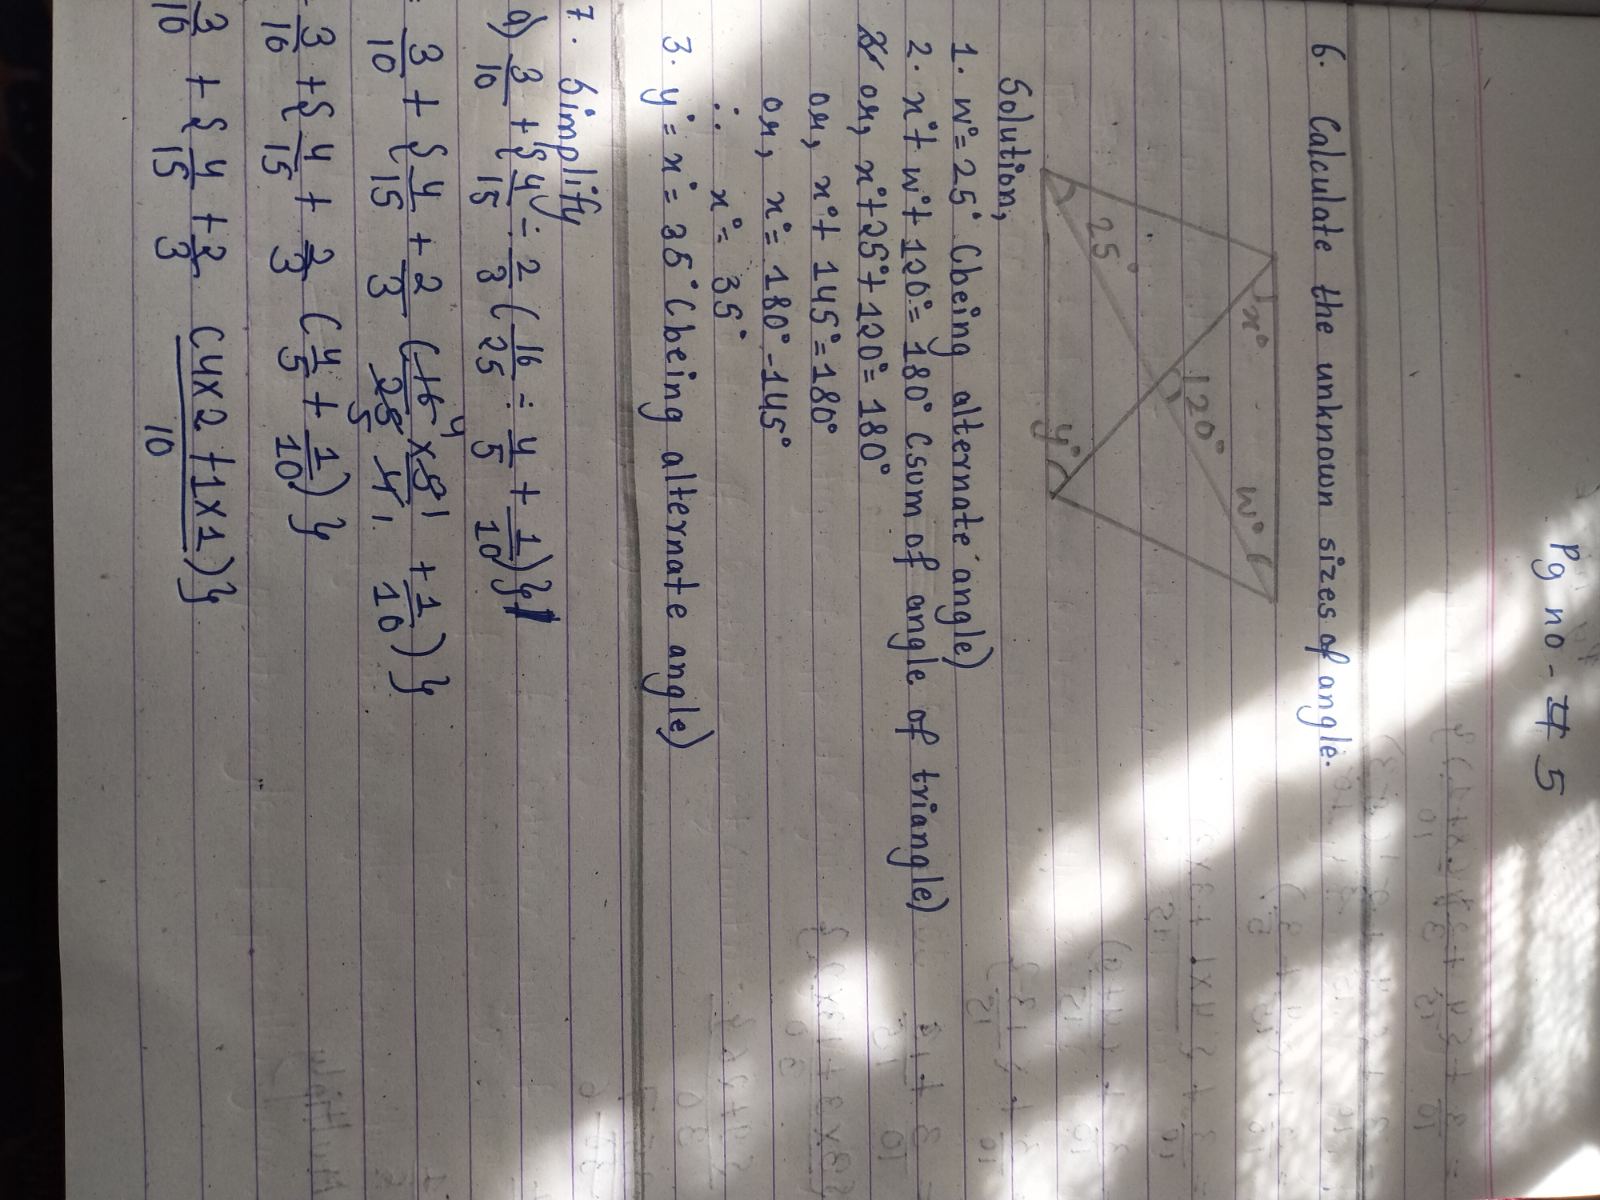 Pg no - 5
6. Calculate the unknown sizes of angle.
x° 120° w°
25° y°
Solution,
1. w° = 25° (being alternate angle)
2. x° + w° + 120° = 180° (sum of angle of triangle)
or, x° + 25° + 120° = 180°
or, x° + 145° = 180°
or, x° = 180° - 145°
∴ x° = 35°
3. y° = x° = 35° (being alternate angle)
7. Simplify
a) 3/10 + {4/15 ÷ 2/3 (16/25 ÷ 4/5 + 1/10)}
= 3/10 + {4/15 + 2/3 (16/25 × 5/4 + 1/10)}
3/10 + {4/15 + 2/3 (4/5 + 1/10)}
3/10 + {4/15 + 2/3 (4×2+1×1)/10}